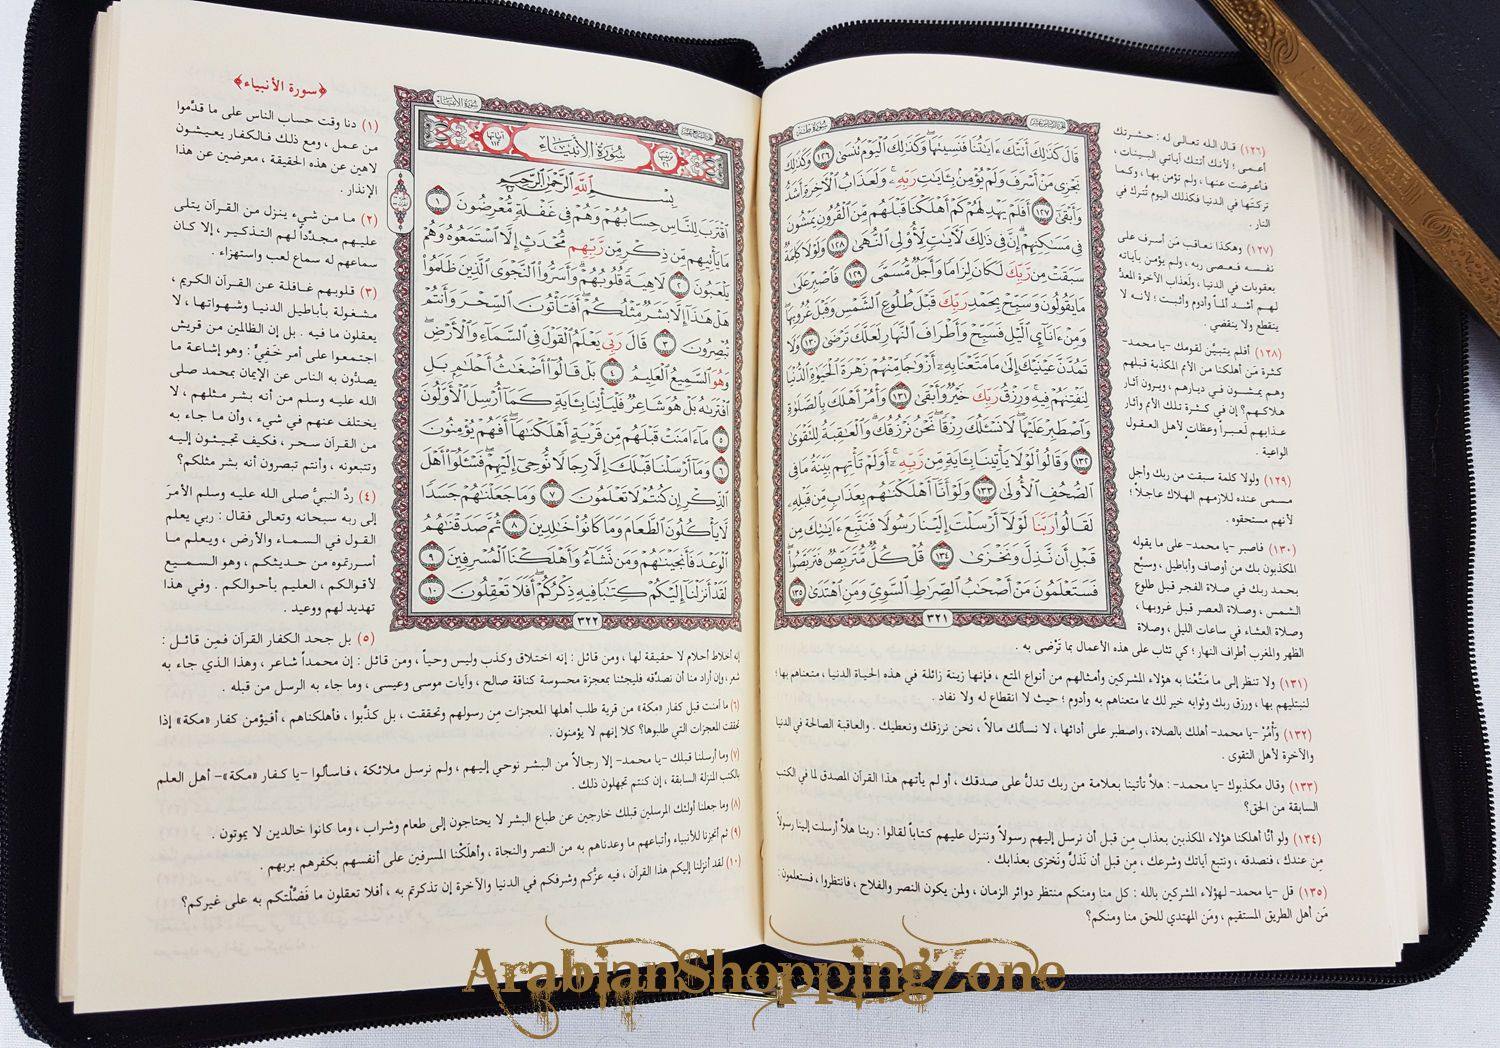 سُورَةُ طٰهٰ
قَالَ كَذَٰلِكَ أَتَتْكَ ءَايَٰتُنَا فَنَسِيتَهَا وَكَذَٰلِكَ ٱلْيَوْمَ تُنسَىٰ ١٢٦ وَكَذَٰلِكَ
نَجْزِى مَنْ أَسْرَفَ وَلَمْ يُؤْمِنۢ بِـَٔايَٰتِ رَبِّهِۦ وَلَعَذَابُ ٱلْءَاخِرَةِ أَشَدُّ
وَأَبْقَىٰٓ ١٢٧ أَفَلَمْ يَهْدِ لَهُمْ كَمْ أَهْلَكْنَا قَبْلَهُم مِّنَ ٱلْقُرُونِ يَمْشُونَ
فِى مَسَٰكِنِهِمْ إِنَّ فِى ذَٰلِكَ لَءَايَٰتٍ لِّأُو۟لِى ٱلنُّهَىٰ ١٢٨ وَلَوْلَا كَلِمَةٌ
سَبَقَتْ مِن رَّبِّكَ لَكَانَ لِزَامًا وَأَجَلٌ مُّسَمًّى ١٢٩ فَٱصْبِرْ عَلَىٰ
مَا يَقُولُونَ وَسَبِّحْ بِحَمْدِ رَبِّكَ قَبْلَ طُلُوعِ ٱلشَّمْسِ وَقَبْلَ غُرُوبِهَا
وَمِنْ ءَانَآئِ ٱلَّيْلِ فَسَبِّحْ وَأَطْرَافَ ٱلنَّهَارِ لَعَلَّكَ تَرْضَىٰ ١٣٠ وَلَا
تَمُدَّنَّ عَيْنَيْكَ إِلَىٰ مَا مَتَّعْنَا بِهِۦٓ أَزْوَٰجًا مِّنْهُمْ زَهْرَةَ ٱلْحَيَوٰةِ ٱلدُّنْيَا
لِنَفْتِنَهُمْ فِيهِ وَرِزْقُ رَبِّكَ خَيْرٌ وَأَبْقَىٰ ١٣١ وَأْمُرْ أَهْلَكَ بِٱلصَّلَوٰةِ
وَٱصْطَبِرْ عَلَيْهَا لَا نَسْـَٔلُكَ رِزْقًا نَّحْنُ نَرْزُقُكَ وَٱلْعَٰقِبَةُ لِلتَّقْوَىٰ
١٣٢ وَقَالُوا۟ لَوْلَا يَأْتِينَا بِـَٔايَةٍ مِّن رَّبِّهِۦٓ أَوَلَمْ تَأْتِهِم بَيِّنَةُ مَا فِى
ٱلصُّحُفِ ٱلْأُولَىٰ ١٣٣ وَلَوْ أَنَّآ أَهْلَكْنَٰهُم بِعَذَابٍ مِّن قَبْلِهِۦ
لَقَالُوا۟ رَبَّنَا لَوْلَآ أَرْسَلْتَ إِلَيْنَا رَسُولًا فَنَتَّبِعَ ءَايَٰتِكَ مِن
قَبْلِ أَن نَّذِلَّ وَنَخْزَىٰ ١٣٤ قُلْ كُلٌّ مُّتَرَبِّصٌ فَتَرَبَّصُوا۟
فَسَتَعْلَمُونَ مَنْ أَصْحَٰبُ ٱلصِّرَٰطِ ٱلسَّوِىِّ وَمَنِ ٱهْتَدَىٰ ١٣٥
٣٢١
(١٢٦) قال الله تعالى له : حشرتك
أعمى ؛ لأنك أتتك آياتي البينات ،
فأعرضت عنها ، ولم تؤمن بها ، وكما
تركتها في الدنيا فكذلك اليوم تُترك في
النار .
(١٢٧) وهكذا نعاقب مَن أسرف على
نفسه فعصى ربه ، ولم يؤمن بآياته
بعقوبات في الدنيا ، ولعذاب الآخرة المعدُّ
لهم أشد ألماً وأدوم وأثبت ؛ لأنه لا
ينقطع ولا ينقضي .
(١٢٨) أفلم يتبيَّن لقومك -يا محمد-
كثرة مَن أهلكنا من الأمم المكذبة قبلهم
وهم يمشون في ديارهم ، ويرون آثار
هلاكهم؟ إن في كثرة تلك الأمم وآثار
عذابهم لَعبراً وعظات لأهل العقول
الواعية .
(١٢٩) ولولا كلمة سبقت من ربك وأجل
مسمى عنده للازمهم الهلاك عاجلاً ؛
لأنهم مستحقوه .
(١٣٠) فاصبر -يا محمد- على ما يقوله
المكذبون بك من أوصاف وأباطيل ، وسبِّح
بحمد ربك في صلاة الفجر قبل طلوع
الشمس ، وصلاة العصر قبل غروبها ،
وصلاة العشاء في ساعات الليل ، وصلاة
الظهر والمغرب أطراف النهار ؛ كي تثاب على هذه الأعمال بما تَرْضى به .
(١٣١) ولا تنظر إلى ما مَتَّعْنا به هؤلاء المشركين وأمثالهم من أنواع المتع ، فإنها زينة زائلة في هذه الحياة الدنيا ، متعناهم بها ؛
لنبتليهم بها ، ورزق ربك وثوابه خير لك مما متعناهم به وأدوم ؛ حيث لا انقطاع له ولا نفاد .
(١٣٢) وَأْمُرْ -يا محمد- أهلك بالصلاة ، واصطبر على أدائها ، لا نسألك مالاً ، نحن نرزقك ونعطيك . والعاقبة الصالحة في الدنيا
والآخرة لأهل التقوى .
(١٣٣) وقال مكذبوك -يا محمد- : هلاَّ تأتينا بعلامة من ربك تدلُّ على صدقك ، أو لم يأتهم هذا القرآن المصدق لما في الكتب
السابقة من الحق؟
(١٣٤) ولو أنَّا أهلكنا هؤلاء المكذبين بعذاب مِن قبل أن نرسل إليهم رسولاً وننزل عليهم كتاباً لقالوا : ربنا هلاَّ أرسلت إلينا رسولاً
مِن عندك ، فنصدقه ، ونتبع آياتك وشرعك ، مِن قبل أن نَذلَّ ونَخزى بعذابك .
(١٣٥) قل -يا محمد- لهؤلاء المشركين بالله : كل منا ومنكم منتظر دوائر الزمان ، ولمن يكون النصر والفلاح ، فانتظروا ، فستعلمون :
مَن أهل الطريق المستقيم ، ومَن المهتدي للحق منا ومنكم؟
سُورَةُ الأَنْبِيَاءِ
سُورَةُ الأَنْبِيَاءِ
آيَاتُهَا ١١٢
بِسْمِ ٱللَّهِ ٱلرَّحْمَٰنِ ٱلرَّحِيمِ
ٱقْتَرَبَ لِلنَّاسِ حِسَابُهُمْ وَهُمْ فِى غَفْلَةٍ مُّعْرِضُونَ ١
مَا يَأْتِيهِم مِّن ذِكْرٍ مِّن رَّبِّهِم مُّحْدَثٍ إِلَّا ٱسْتَمَعُوهُ وَهُمْ
يَلْعَبُونَ ٢ لَاهِيَةً قُلُوبُهُمْ وَأَسَرُّوا۟ ٱلنَّجْوَى ٱلَّذِينَ ظَلَمُوا۟
هَلْ هَٰذَآ إِلَّا بَشَرٌ مِّثْلُكُمْ أَفَتَأْتُونَ ٱلسِّحْرَ وَأَنتُمْ
تُبْصِرُونَ ٣ قَالَ رَبِّى يَعْلَمُ ٱلْقَوْلَ فِى ٱلسَّمَآءِ وَٱلْأَرْضِ
وَهُوَ ٱلسَّمِيعُ ٱلْعَلِيمُ ٤ بَلْ قَالُوٓا۟ أَضْغَٰثُ أَحْلَٰمٍۭ بَلِ
ٱفْتَرَىٰهُ بَلْ هُوَ شَاعِرٌ فَلْيَأْتِنَا بِـَٔايَةٍ كَمَآ أُرْسِلَ ٱلْأَوَّلُونَ
٥ مَآ ءَامَنَتْ قَبْلَهُم مِّن قَرْيَةٍ أَهْلَكْنَٰهَآ أَفَهُمْ يُؤْمِنُونَ
٦ وَمَآ أَرْسَلْنَا قَبْلَكَ إِلَّا رِجَالًا نُّوحِىٓ إِلَيْهِمْ فَسْـَٔلُوٓا۟ أَهْلَ
ٱلذِّكْرِ إِن كُنتُمْ لَا تَعْلَمُونَ ٧ وَمَا جَعَلْنَٰهُمْ جَسَدًا
لَّا يَأْكُلُونَ ٱلطَّعَامَ وَمَا كَانُوا۟ خَٰلِدِينَ ٨ ثُمَّ صَدَقْنَٰهُمُ
ٱلْوَعْدَ فَأَنجَيْنَٰهُمْ وَمَن نَّشَآءُ وَأَهْلَكْنَا ٱلْمُسْرِفِينَ ٩
لَقَدْ أَنزَلْنَآ إِلَيْكُمْ كِتَٰبًا فِيهِ ذِكْرُكُمْ أَفَلَا تَعْقِلُونَ ١٠
٣٢٢
﴿سورة الأنبياء﴾
(١) دنا وقت حساب الناس على ما قدَّموا
من عمل ، ومع ذلك فالكفار يعيشون
لاهين عن هذه الحقيقة ، معرضين عن هذا
الإنذار .
(٢) ما من شيء ينزل من القرآن يتلى
عليهم مجدِّداً لهم التذكير ، إلا كان
سماعهم له سماع لعب واستهزاء .
(٣) قلوبهم غافلة عن القرآن الكريم ،
مشغولة بأباطيل الدنيا وشهواتها ، لا
يعقلون ما فيه . بل إن الظالمين من قريش
اجتمعوا على أمر خَفيٍّ : وهو إشاعة ما
يصدُّون به الناس عن الإيمان بمحمد صلى
الله عليه وسلم من أنه بشر مثلهم ، لا
يختلف عنهم في شيء ، وأن ما جاء به
من القرآن سحر ، فكيف تجيئون إليه
وتتبعونه ، وأنتم تبصرون أنه بشر مثلكم؟
(٤) ردَّ النبيُّ صلى الله عليه وسلم الأمرَ
إلى ربه سبحانه وتعالى فقال : ربي يعلم
القول في السماء والأرض ، ويعلم ما
أسررتموه من حديثكم ، وهو السميع
لأقوالكم ، العليم بأحوالكم . وفي هذا
تهديد لهم ووعيد .
(٥) بل جحد الكفار القرآن فمِن قائل :
إنه أخلاط أحلام لا حقيقة لها ، ومن قائل : إنه اختلاق وكذب وليس وحياً ، ومن قائل : إن محمداً شاعر ، وهذا الذي جاء به
شعر ، وإن أراد منا أن نصدِّقه فليجئنا بمعجزة محسوسة كناقة صالح ، وآيات موسى وعيسى ، وما جاء به الرسل من قبله .
(٦) ما آمنت قبل كفار «مكة» من قرية طلب أهلها المعجزات مِن رسولهم وتحققت ، بل كذَّبوا ، فأهلكناهم ، أفيؤمن كفار «مكة» إذا
تحققت المعجزات التي طلبوها؟ كلا إنهم لا يؤمنون .
(٧) وما أرسلنا قبلك -يا محمد- إلا رجالاً من البشر نوحي إليهم ، ولم نرسل ملائكة ، فاسألوا -يا كفار «مكة»- أهل العلم
بالكتب المنزلة السابقة ، إن كنتم تجهلون ذلك .
(٨) وما جعلنا أولئك المرسلين قبلك خارجين عن طباع البشر لا يحتاجون إلى طعام وشراب ، وما كانوا خالدين لا يموتون .
(٩) ثم أنجزنا للأنبياء وأتباعهم ما وعدناهم به من النصر والنجاة ، وأهلَكْنا المسرفين على أنفسهم بكفرهم بربهم .
(١٠) لقد أنزلنا إليكم هذا القرآن ، فيه عزُّكم وشرفكم في الدنيا والآخرة إن تذكرتم به ، أفلا تعقلون ما فَضَّلْتكم به على غيركم؟
ArabianShoppingZone